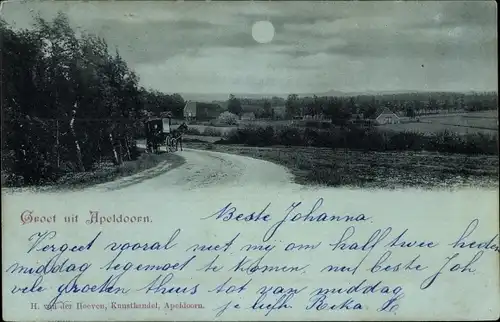 Groet uit Apeldoorn.
Beste Johanna
Vergeet vooral niet mij om half twee heden
middag tegemoet te komen, nu beste Joh
vele groeten thuis tot van middag
je liefh Rika
H. van der Hoeven, Kunsthandel, Apeldoorn.